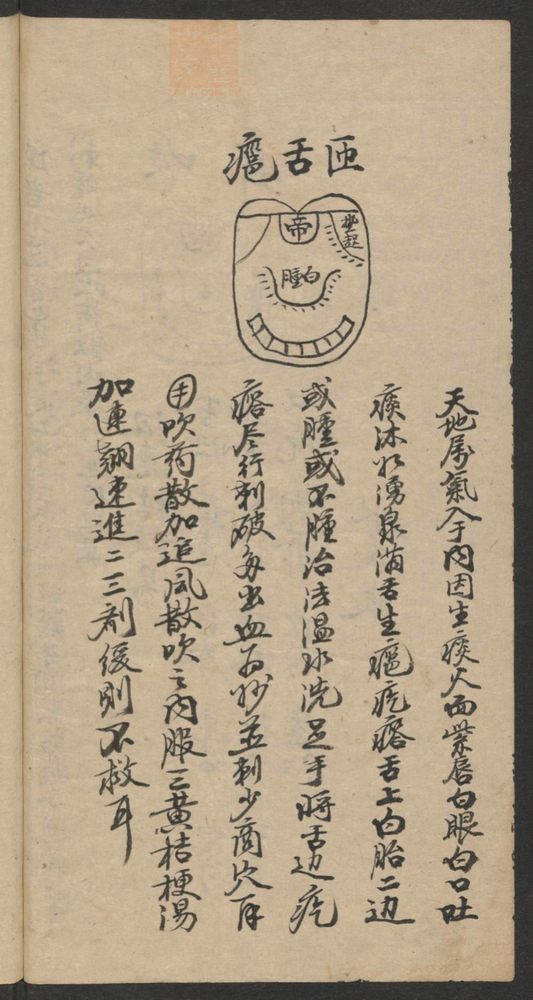 匝舌㿈
帝
竪起
白
腫
天地厲氣入于内因生痰火面紫唇白眼白口吐
痰沫水湧泉滿舌生㿈疙瘩舌上白胎二边
或腫或不腫治法温水洗足手将舌边疙
瘩尽行刺破多出血为妙並刺少商穴再
用吹药散加追風散吹之内服三黄桔梗湯
加連翹速進二三剤缓則不救耳